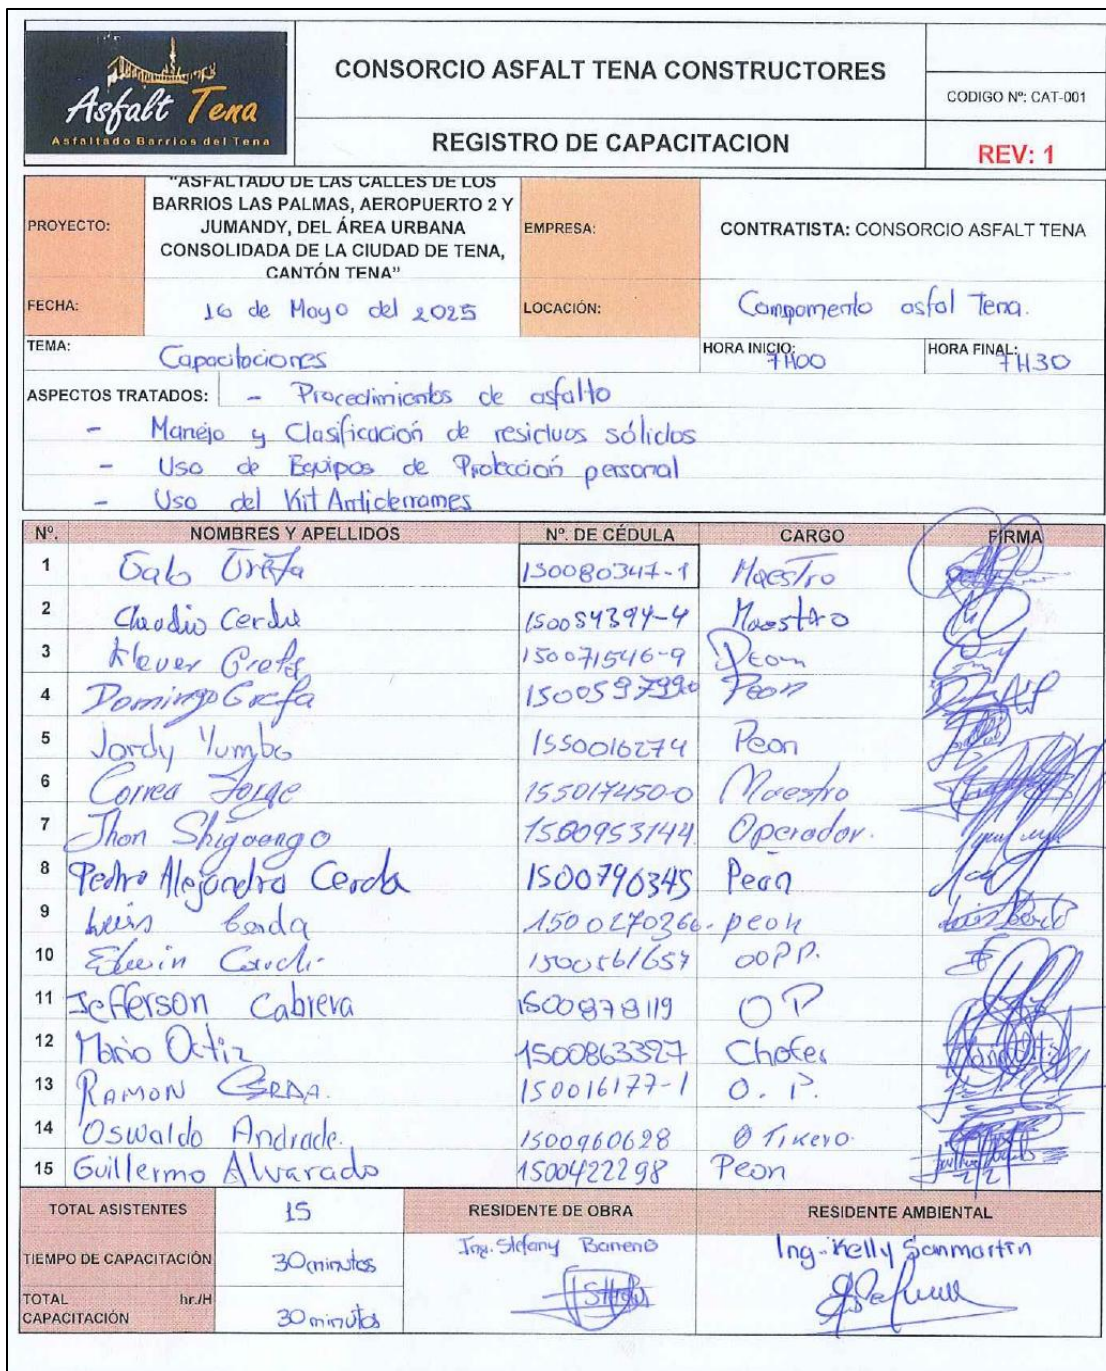 Asfalt Tena
Asfaltado Barrios del Tena
CONSORCIO ASFALT TENA CONSTRUCTORES
CODIGO Nº: CAT-001
REGISTRO DE CAPACITACION
REV: 1
PROYECTO:
"ASFALTADO DE LAS CALLES DE LOS
BARRIOS LAS PALMAS, AEROPUERTO 2 Y
JUMANDY, DEL ÁREA URBANA
CONSOLIDADA DE LA CIUDAD DE TENA,
CANTÓN TENA"
EMPRESA:
CONTRATISTA: CONSORCIO ASFALT TENA
FECHA: 16 de Mayo del 2025
LOCACIÓN: Campamento asfal Tena.
TEMA: Capacitaciones
HORA INICIO: 7H00
HORA FINAL: 7H30
ASPECTOS TRATADOS: - Procedimientos de asfalto
- Manejo y Clasificación de residuos sólidos
- Uso de Equipos de Protección personal
- Uso del Kit Antiderrames
Nº. NOMBRES Y APELLIDOS Nº. DE CÉDULA CARGO FIRMA
1 Galo 150080347-1 Maestro
2 Claudio 150054394-4 Maestro
3 Klever Grefa 150071546-9 Peon
4 Domingo Grefa Peon
5 Jordy Yumbo 1550016274 Peon
6 Correa Jorge 155017450-0 Maestro
7 Jhon Shiguango 1500953144 Operador.
8 Pedro Alejandro Cerda 1500790345 Peon
9 Luis Cerda 1500270366. peon
10 1500561657 OOPP.
11 Jefferson Cabrera 1500878119 OP
12 Mario Ortiz 1500863327 Chofer
13 RAMON CERDA. 150016177-1 O. P.
14 Oswaldo Andrade. 1500960628
15 Guillermo Alvarado 1500422298 Peon
TOTAL ASISTENTES 15 RESIDENTE DE OBRA RESIDENTE AMBIENTAL
TIEMPO DE CAPACITACIÓN 30 minutos
Ing. Stefany Ing. Kelly Sanmartin
TOTAL hr./H
CAPACITACIÓN 30 minutos